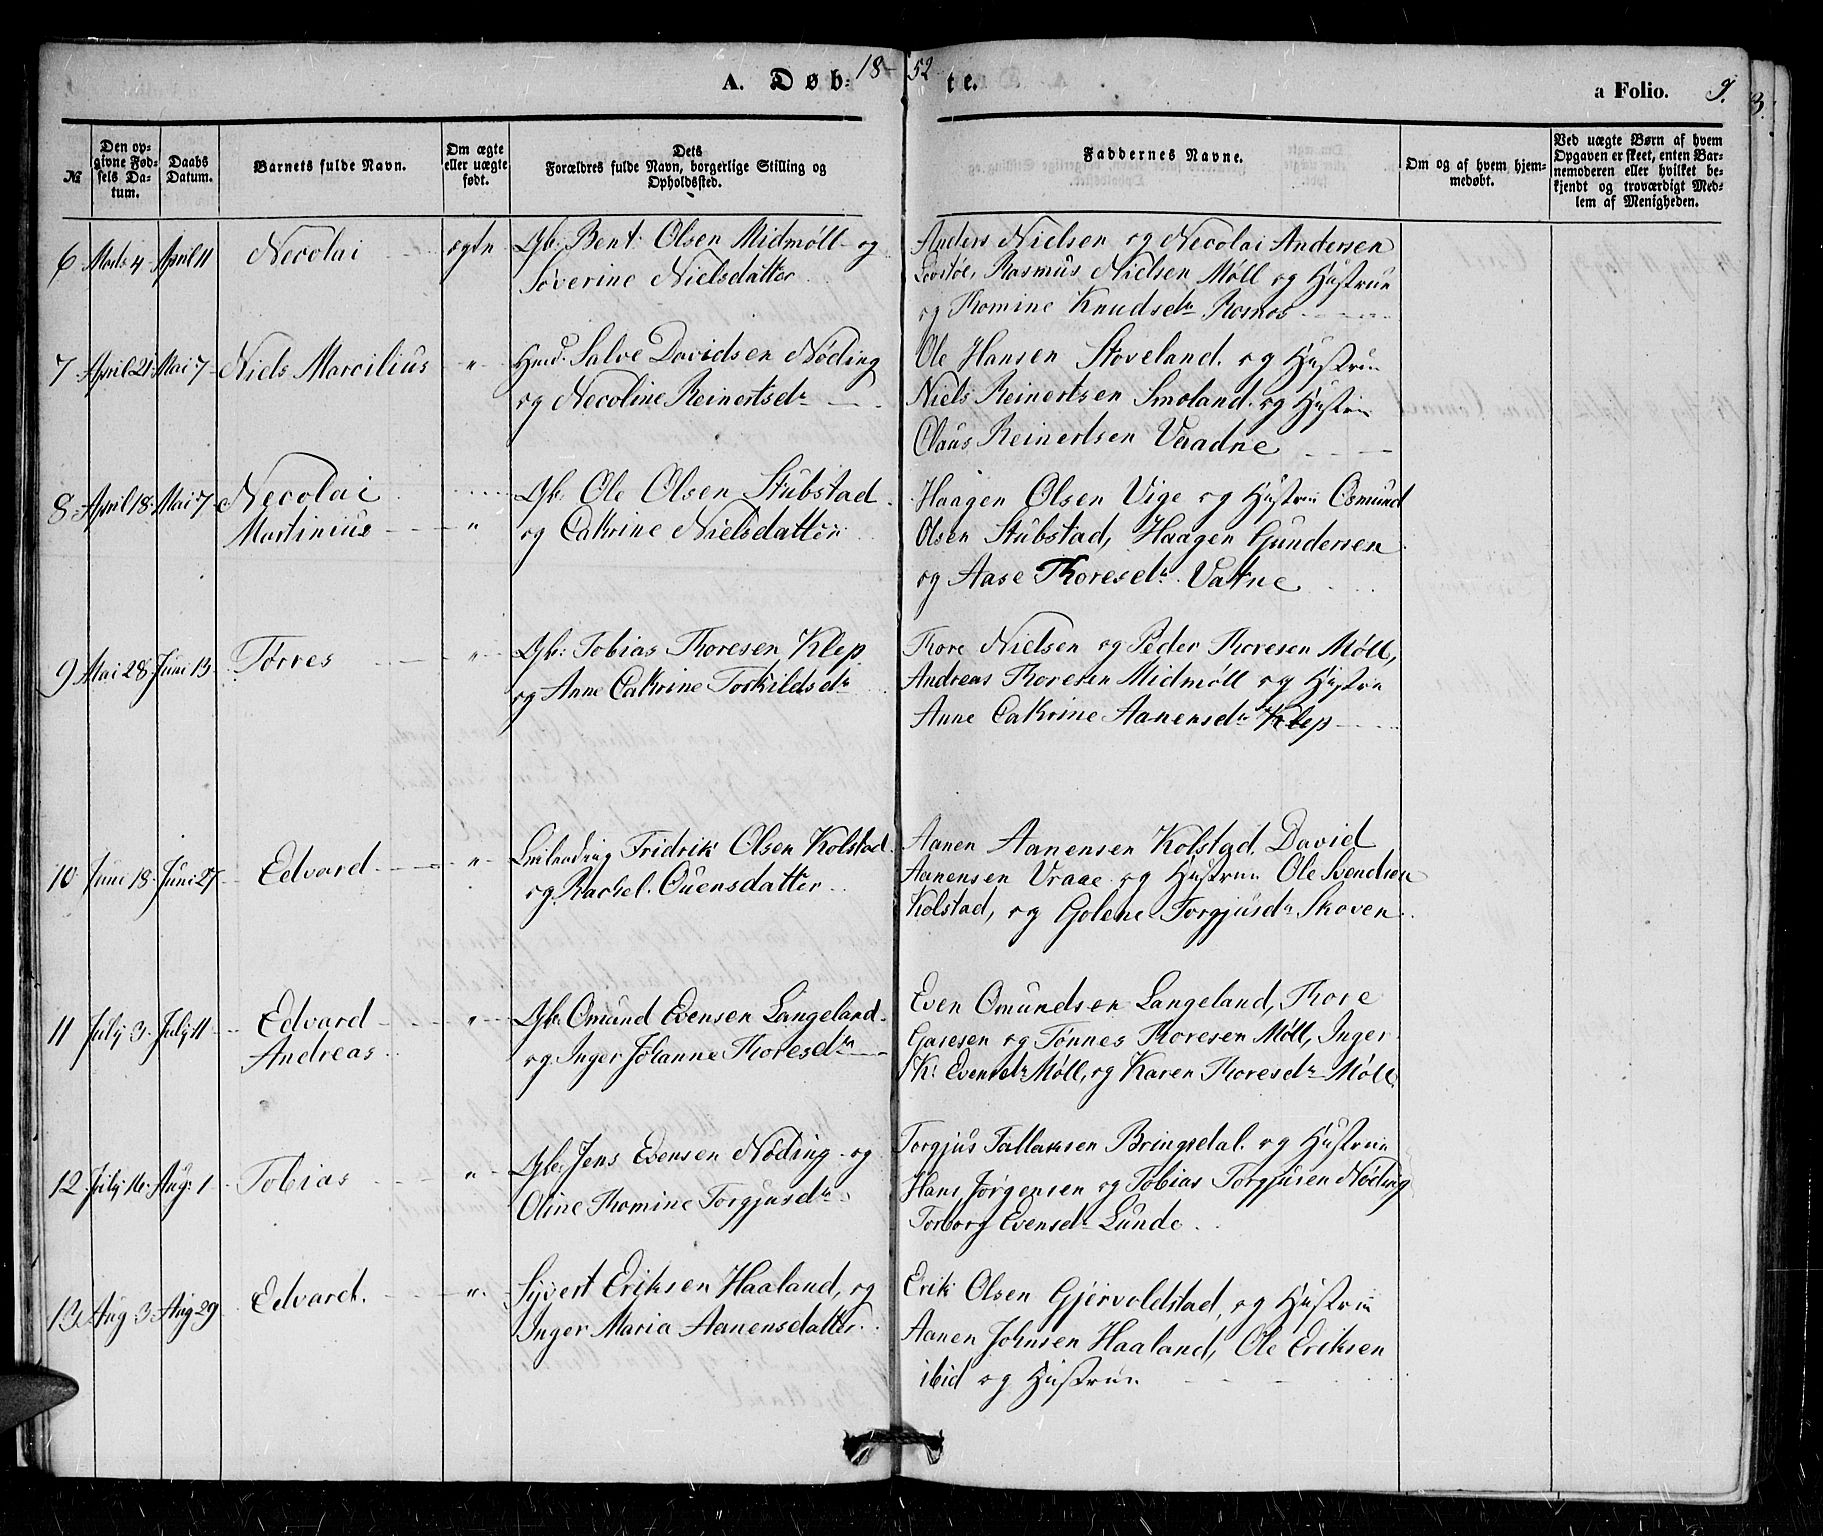 18-52
A. Døb-
te.
a Folio. 9.
3.
№
Den op-
givne Fød-
sels Da-
tum.
Daabs
Datum.
Barnets fulde Navn.
Om ægte
eller uægte
født.
Dets
Forældres fulde Navn, borgerlige Stilling og
Opholdssted.
Faddernes Navne.
Om og af hvem hjem-
medøbt.
Ved uægte Børn af hvem
Opgaven er skeet, enten Bar-
nemoderen eller hvilket be-
kjendt og troværdigt Med-
lem af Menigheden.
6 Marts 4 April 11 Necolai ægte Gb: Bent Olsen Midmøll og
Söverine Nielsdatter
Anders Nielsen og Necolai Andersen
Rasmus Nielsen Møll og Hustrue
og Thomine Knudsdr Rosnos
7 April 21 Mai 7 Niels Marcilius " Hmd. Salve Davidsen Nöding
og Necoline Reinertsdr
Ole Hansen Stoveland og Hustrue
Niels Reinertsen Smoland og Hustrue
Claus Reinertsen Vaadne
8 April 18 Mai 7 Necolai
Martinius " Gb: Ole Olsen Stubstad
og Cathrine Nielsdatter
Haagen Olsen Vige og Hustrue Osmund
Olsen Stubstad, Haagen Gundersen
og Aase Thoresdr Vatne
9 Mai 28 Juni 13 Torres " Gb: Tobias Thoresen Klep
og Anne Cathrine Torkildsdr
Thore Nielsen og Peder Thoresen Møll,
Andreas Thoresen Midmøll og Hustrue
Anne Cathrine Aanensdr Klep
10 Juni 18 Juni 27 Edvard " Leilænding Fridrik Olsen Kolstad
og Rachel Ouensdatter
Aanen Aanensen Kolstad, David
Aanensen Vraae og Hustrue Ole Svendsen
Kolstad, og Golene Torgjusdr Skoven
11 July 3 July 11 Edvard
Andreas " Gb: Omund Evensen Langeland
og Inger Johanne Thoresdr
Even Omundsen Langeland, Thore
Garesen og Tønnes Thoresen Møll, Inger
K: Evensdr Møll, og Karen Thoresdr Møll
12 July 16 Aug: 1 Tobias " Gb: Jens Evensen Nöding og
Oline Thomine Torgjusdr
Torgjus Tallaksen Bringsdal og Hustrue
Hans Jørgensen og Tobias Torgjusen Nöding
Torborg Evensdr Lunde
13 Aug 3 Aug 29 Edvard. " Syvert Eriksen Haaland, og
Inger Maria Aanensdatter
Erik Olsen Gjervoldstad, og Hustrue
Aanen Johnsen Haaland, Ole Eriksen
ibid og Hustrue